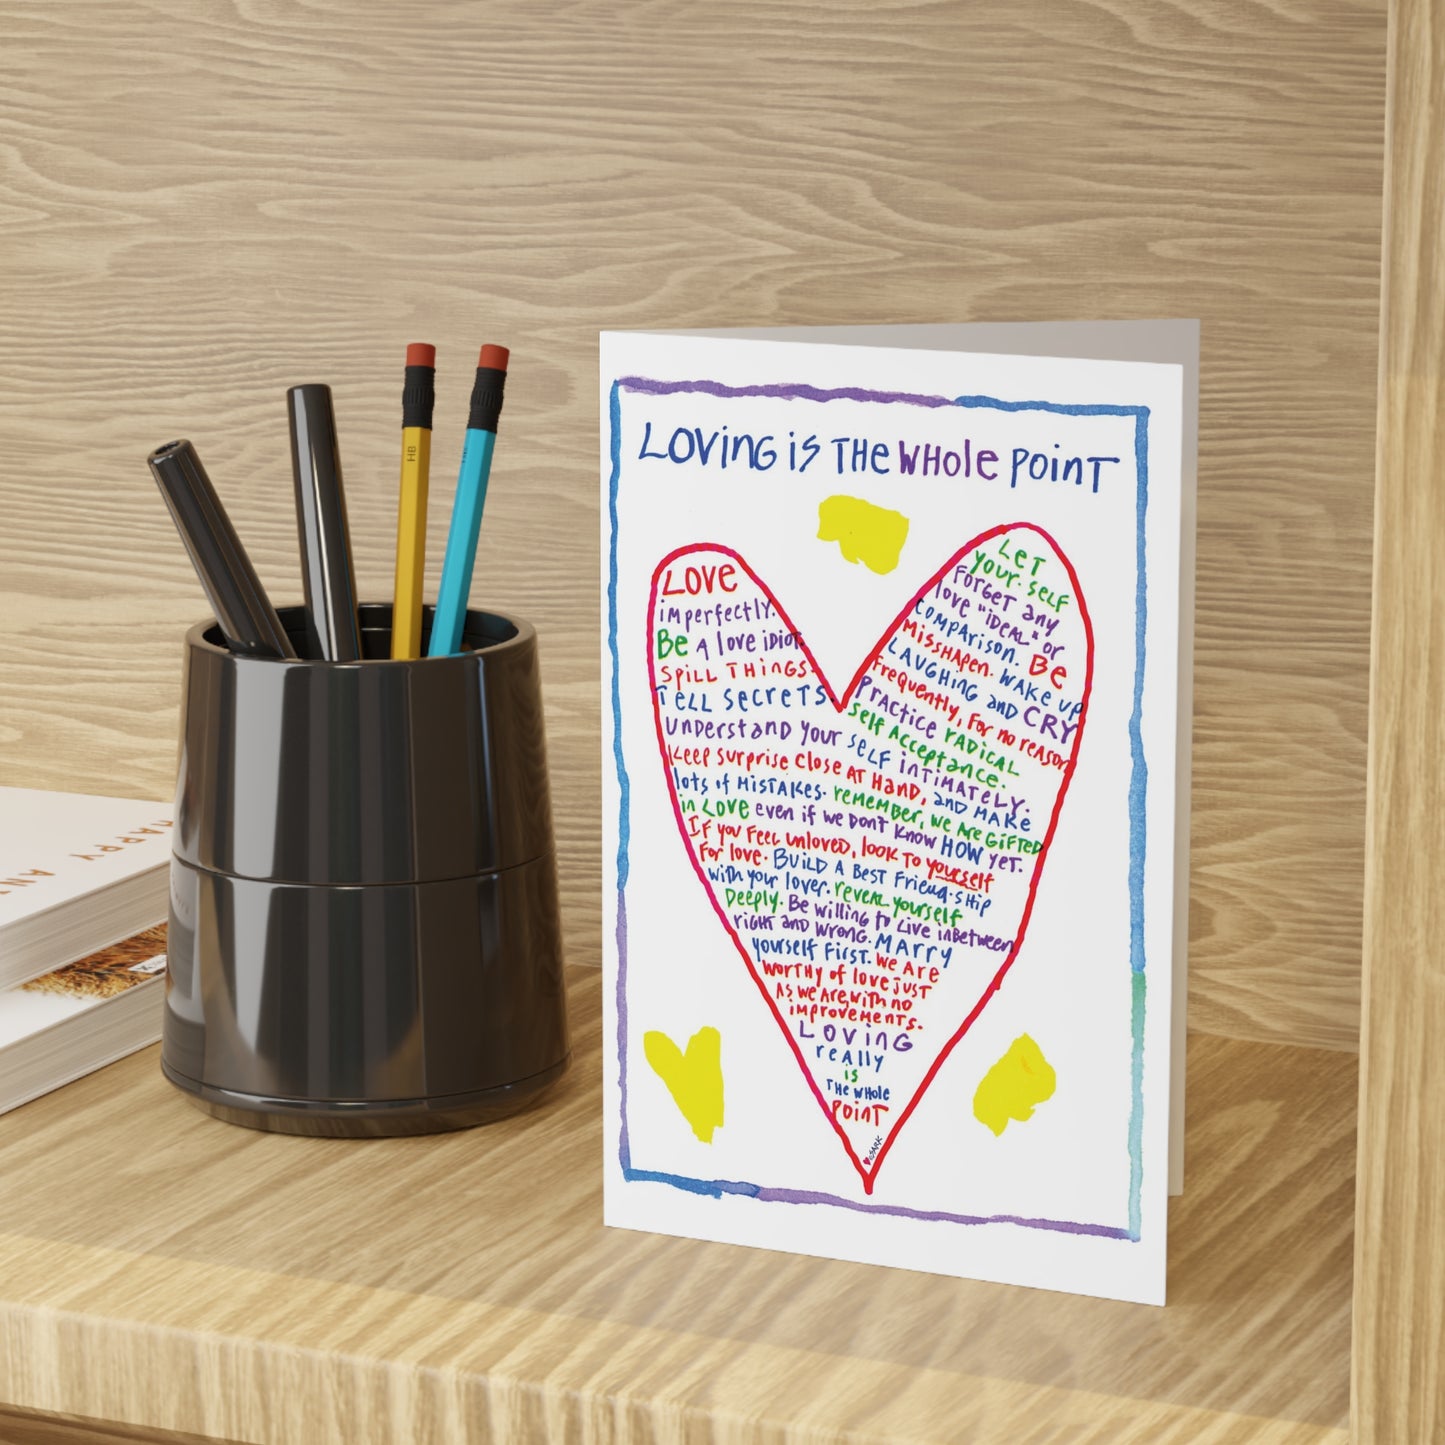 LOVING iS THE WHOLE POINT
LOVE
imperfectly.
Be A love iDiOT.
SPILL THINGS.
TELL SECRETS.
LET
YOUR·SELF
FORGET any
love "IDEAL" or
COMPARISON. BE
MISSHAPEN. WAKE UP
LAUGHING and CRY
Frequently, for no reason
PRACTICE RADICAL
Self ACCEPTANCE.
Understand your SELF INTIMATELY.
Keep surprise close AT HAND, and MAKE
lots of MISTAKES. remember, we are GIFTED
in LOVE even if we DON'T KNOW HOW yet.
IF you FEEL UNLOVED, look TO yourself
For love. BUILD A BEST Friend·SHIP
with your lover. reveal yourself
Deeply. Be willing to Live inBetween
right and wrong. MARRY
yourself First. WE ARE
WORTHY of love JUST
AS we are, with no
improvements.
LOVING
really
iS
THE WHOLE
POINT
©SARK
HB
HAPPY ANT